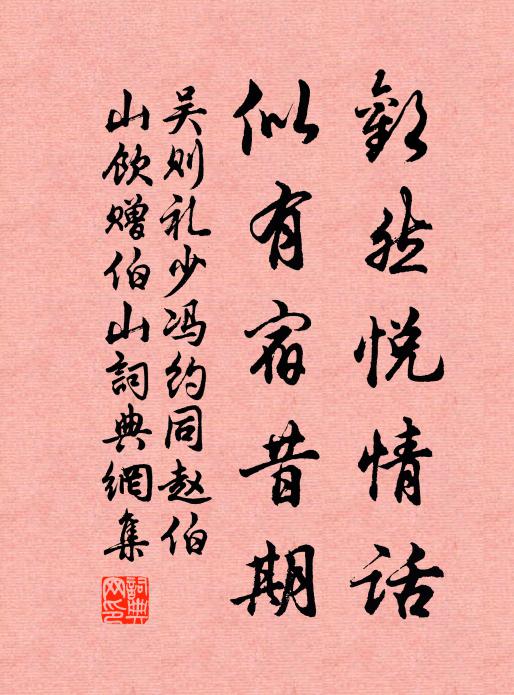 歡然悦情话
似有宿昔期
吴则礼少冯约同赵伯
山饮赠伯山詞典網集
詞典網印